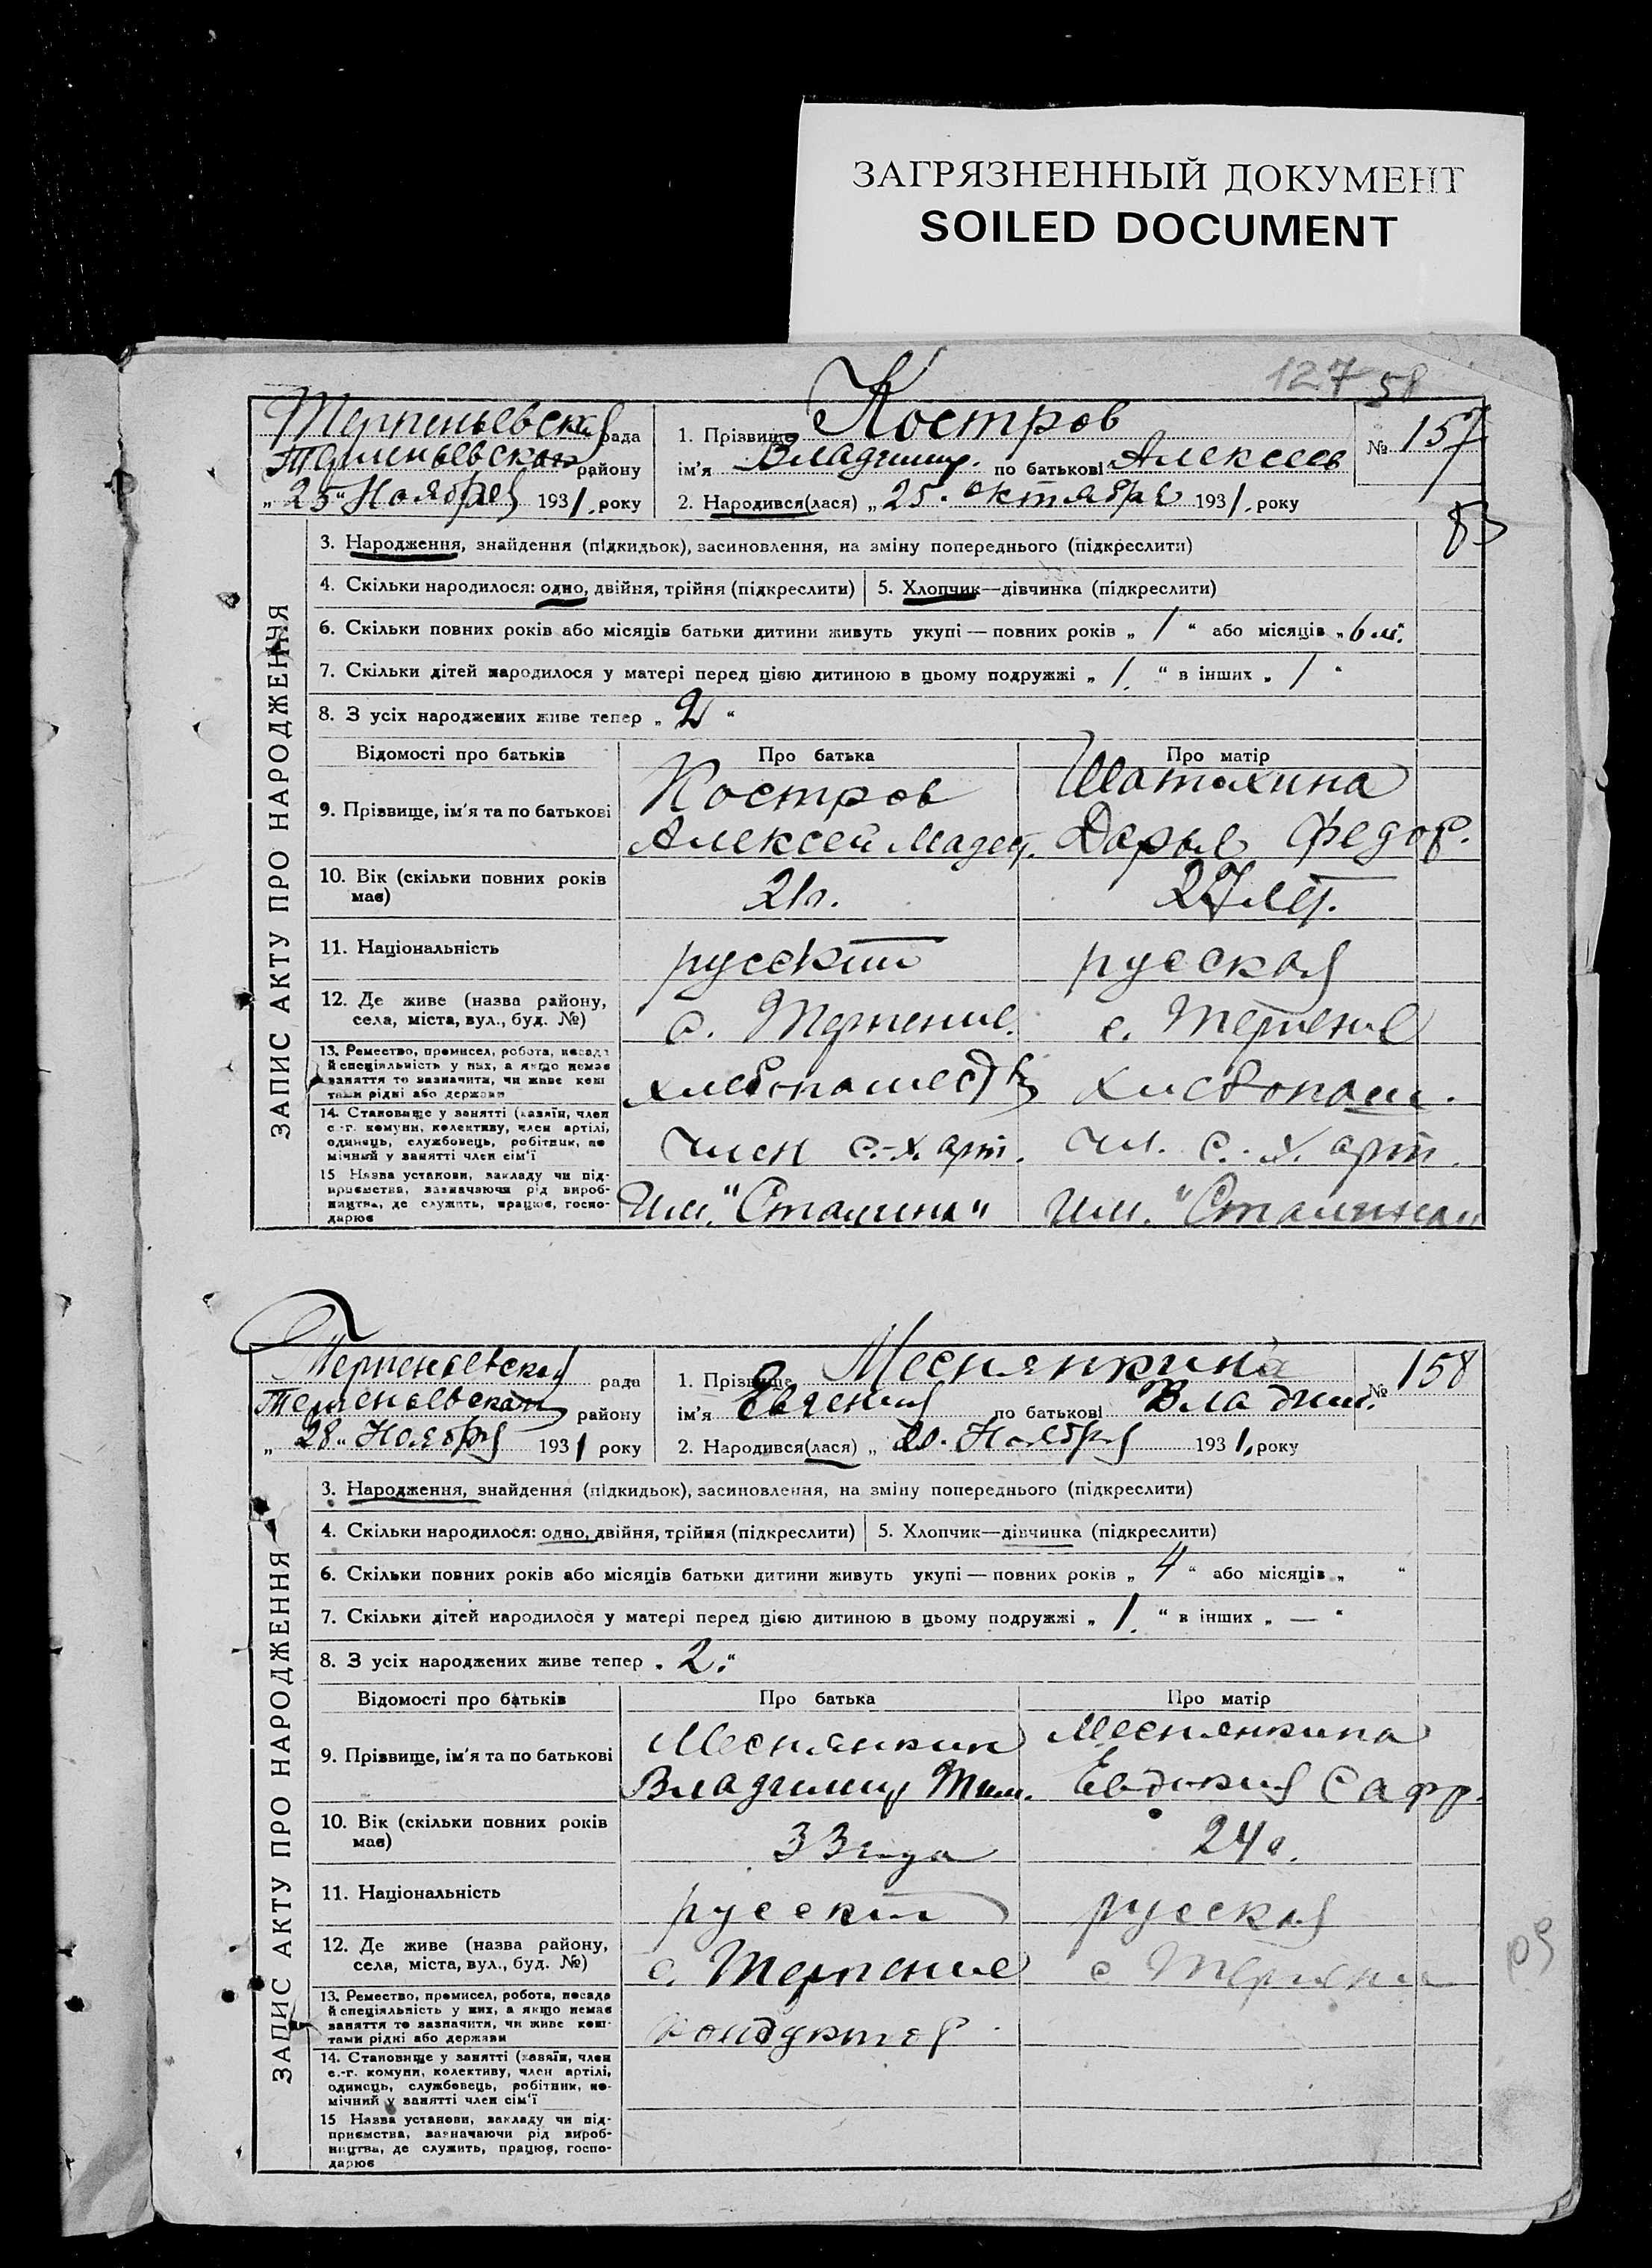 ЗАГРЯЗНЕННЫЙ ДОКУМЕНТ
SOILED DOCUMENT
127 58
Терпеньевская рада
Терпеньевского району
„25“ Ноября 1931. року
1. Прізвище Костров
ім'я Владимир. по батькові Алексеев
2. Народився(лася) „25. октября 1931. року
№ 157
83
ЗАПИС АКТУ ПРО НАРОДЖЕННЯ
3. Народження, знайдення (підкидьок), засиновлення, на зміну попереднього (підкреслити)
4. Скільки народилося: одно, двійня, трійня (підкреслити)
5. Хлопчик—дівчинка (підкреслити)
6. Скільки повних років або місяців батьки дитини живуть укупі — повних років „ 1 “ або місяців „ 6 м.
7. Скільки дітей народилося у матері перед цією дитиною в цьому подружжі „ 1. “ в інших „ 1 “
8. З усіх народжених живе тепер „ 2 “
Відомості про батьків Про батька Про матір
9. Прізвище, ім'я та по батькові
Костров
Алексей
Дарья Федор.
10. Вік (скільки повних років має)
21
27 лет.
11. Національність
русский
русская
12. Де живе (назва району,
села, міста, вул., буд. №)
с. Терпение.
с. Терпение
13. Ремество, промисел, робота, посада
й спеціяльність у них, а якщо немає
заняття то зазначити, чи живе кош
тами рідні або держави
хлебопашество
хлебопаш.
14. Становище у занятті (хазяїн, член
с.-г. комуни, колективу, член артілі,
одинець, службовець, робітник, по
мічний у занятті член сім'ї
член с.-х. арт.
чл. с.-х. арт.
15 Назва установи, закладу чи під-
приємства, зазначаючи рід вироб-
ництва, де служить, працює, госпо-
дарює
Им. "Сталина"
Им. "Сталина"
Терпеньевская рада
Терпеньевском району
„28“ Ноября 1931 року
1. Прізвище Меснянкина
ім'я Евгения по батькові Владим.
2. Народився(лася) „20. Ноября 1931. року
№ 158
ЗАПИС АКТУ ПРО НАРОДЖЕННЯ
3. Народження, знайдення (підкидьок), засиновлення, на зміну попереднього (підкреслити)
4. Скільки народилося: одно, двійня, трійня (підкреслити)
5. Хлопчик—дівчинка (підкреслити)
6. Скільки повних років або місяців батьки дитини живуть укупі — повних років „ 4 “ або місяців „ “
7. Скільки дітей народилося у матері перед цією дитиною в цьому подружжі „ 1. “ в інших „ — “
8. З усіх народжених живе тепер „ 2. “
Відомості про батьків Про батька Про матір
9. Прізвище, ім'я та по батькові
Меснянкин
Владимир Тим.
Меснянкина
Евдокия Сафр.
10. Вік (скільки повних років має)
33 года
24 г.
11. Національність
русский
русская
12. Де живе (назва району,
села, міста, вул., буд. №)
с. Терпение
с Терпение
13. Ремество, промисел, робота, посада
й спеціяльність у них, а якщо немає
заняття то зазначити, чи живе кош-
тами рідні або держави
кондуктор
14. Становище у занятті (хазяїн, член
с.-г. комуни, колективу, член артілі,
одинець, службовець, робітник, по-
мічний у занятті член сім'ї
15 Назва установи, закладу чи під-
приємства, зазначаючи рід вироб-
ництва, де служить, працює, госпо-
дарює